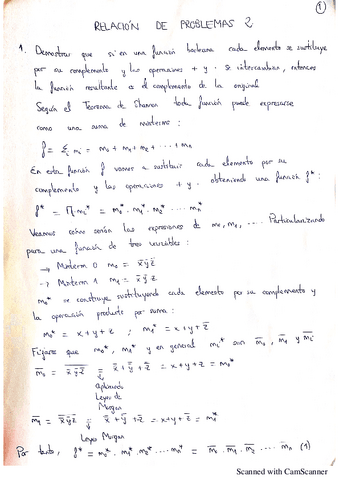 1
RELACIÓN DE PROBLEMAS 2
1. Demostrar que si en una función booleana cada elemento se sustituye
por su complemento y las operaciones + y · se intercambian, entonces
la función resultante es el complemento de la original
Según el Teorema de Shanon toda función puede expresarse
como una suma de minterms:
f = Σi mi = m0 + m1 + m2 + ... + mn
En esta función f vamos a sustituir cada elemento por su
complemento y las operaciones + y · obteniendo una función f*:
f* = Π mi* = m0* · m1* · m2* ... mn*
Veamos cómo serían las expresiones de m0, m1, .... Particularizando
para una función de tres variables:
→ Minterm 0 m0 = x̄ȳz̄
→ Minterm 1 m1 = x̄ȳz
m0* se construye sustituyendo cada elemento por su complemento y
la operación producto por suma:
m0* = x+y+z ; m1* = x+y+z̄
Fijarse que m0*, m1* y en general mi* son m̄0, m̄1 y m̄i
Aplicando
Leyes de
Morgan
Leyes Morgan
Por tanto, f* = m0* · m1* · m2* ... mn* = m̄0 · m̄1 · m̄2 ... m̄n (1)
Scanned with CamScanner